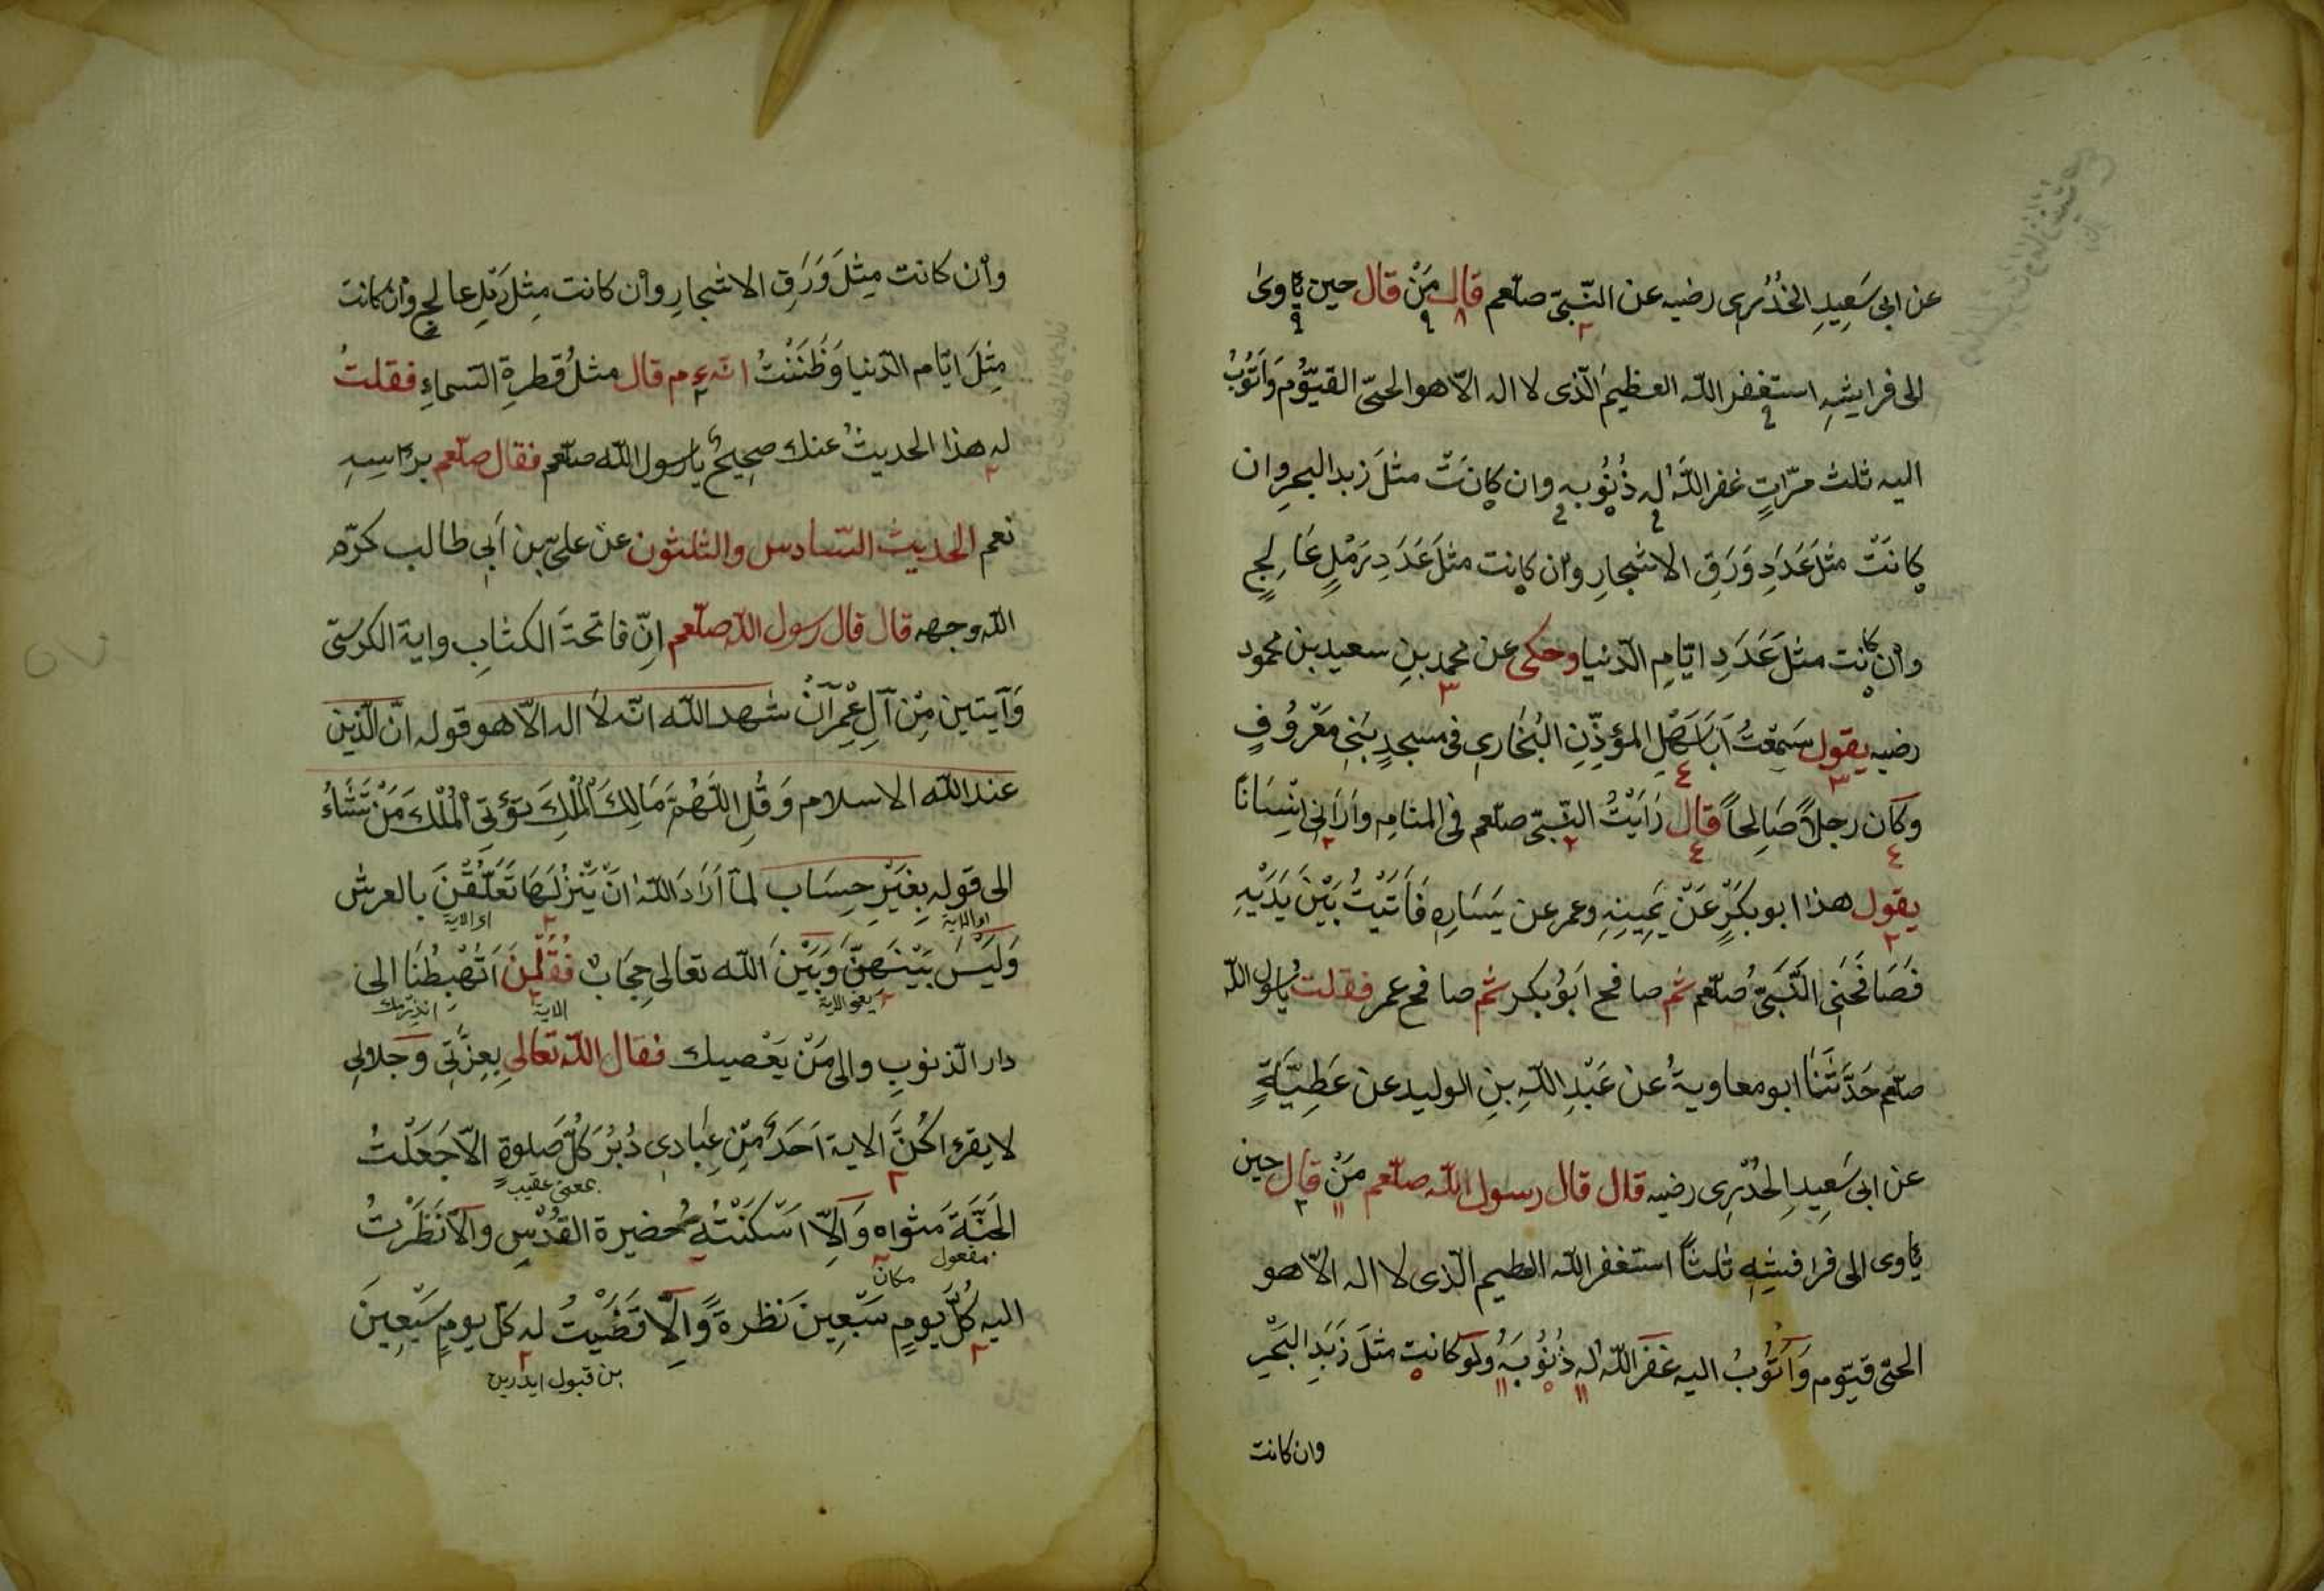 عن ابى سَعِيدِ الخُدْرِى رضيه عن النّبىّ صلّعم قال مَنْ قال حين يأوى
الى فرايشِهِ استغفر اللّه العظيمَ الّذى لا اله الاّ هو الحىّ القيّومَ وَاَتُوبُ
اليه ثلث مرّاتٍ غفر اللّهُ له ذُنُوبه وان كانَتْ مثلَ زبد البحرِ وان
كانَتْ مثلَ عَدَدِ وَرَقِ الاشجارِ وان كانت مثلَ عَدَدِ رَمْلٍ عَالِجٍ
وان كانت مثلَ عَدَدِ ايّامِ الدّنيا وحكى عن محمد بنِ سعيد بن محمود
رضيه يقول سَمِعْتُ اَبَا سَهْلِ المؤذِّنِ البُخَارِى فى مسجدِ بَنِى مَعْرُوفٍ
وكان رجلاً صَالِحاً قال رَاَيْتُ النّبىّ صلّعم فى المنامِ وَاَرَانِى اِنْسَانًا
يقول هذا ابو بكرٍ عَنْ يَمِينِهِ وعمر عن يَسَارِهِ فَاَتَيْتُ بَيْنَ يَدَيْهِ
فَصَافَحَنِى النَّبىُّ صلّعم ثم صافح اَبُو بكر ثم صافح عمر فقلت يا رسول اللّه
صلّعم حَدَّثَنَا ابو معاويةُ عن عَبْدِ اللّهِ بنِ الوليد عن عَطِيَّةٍ
عن ابى سَعِيدِ الخُدْرِى رضيه قال قال رسول اللّه صلّعم مَنْ قال حين
يأوى الى فرافشِهِ ثلثاً استغفر اللّه العظيم الّذى لا اله الاّ هو
الحىّ قيّوم وَاَتُوبُ اليه غَفَرَ اللّهُ له ذُنُوبَهُ ولَوْ كانت مثلَ زَبَدِ البَحْرِ
وان كانت
وان كانت مِثلَ وَرَقِ الاشجارِ وان كانت مِثلَ رَمْلِ عالجٍ وان كانت
مِثلَ ايّام الدّنيا وَظَنَنْتُ انّه ءم قال مثلُ قطرةِ السماءِ فقلتُ
له هذا الحديثُ عنك صحيحٌ يا رسول اللّه صلّعم فقال صلّعم برأسِهِ
نعم الحديث السّادس والثلثون عن على بن اَبِى طالب كرّم
اللّه وجهه قال قال رسول اللّه صلّعم اِنّ فاتحةَ الكتابِ واية الكرسىّ
وَآيتين مِنْ آلِ عِمْرانَ شهد اللّه انّه لا اله الاّ هو قوله انّ الدّين
عند اللّه الاسلام وَقُلِ اللّهُمّ مَالِكَ الْمُلْكِ تؤتِى الْمُلْكَ مَنْ تَشَاءُ
الى قوله بِغَيْرِ حِسَاب لمّا اَرَادَ اللّهُ انْ يُنْزِلَهَا تَعَلَّقْنَ بالعرش
وَلَيْسَ بَيْنَهنّ وَبَيْنَ اللّه تعالى حِجَابٌ فَقُلْنَ اَتُهْبِطُنَا الى
يعنى الاية
الاية
دار الذنوبِ والى مَنْ يَعْصيك فقال اللّه تعالى بِعِزَّتِى وَجَلالِى
لا يقرء اكُنَّ الاية اَحَدٌ مِنْ عِبَادِى دُبُرَ كُلِّ صَلوةٍ الاّ جَعَلْتُ
بمعنى عقيب
الجَنَّةَ مَثواه وَالاّ اَسْكَنْتُهُ حضيرة القُدْسِ والاّ نَظَرْتُ
مفعول
مكان
اليه كُلَّ يومٍ سَبْعِينَ نَظرةً وَالاّ قَضَيْتُ له كلّ يومٍ سَبْعِينَ
بن قبول ايدرين